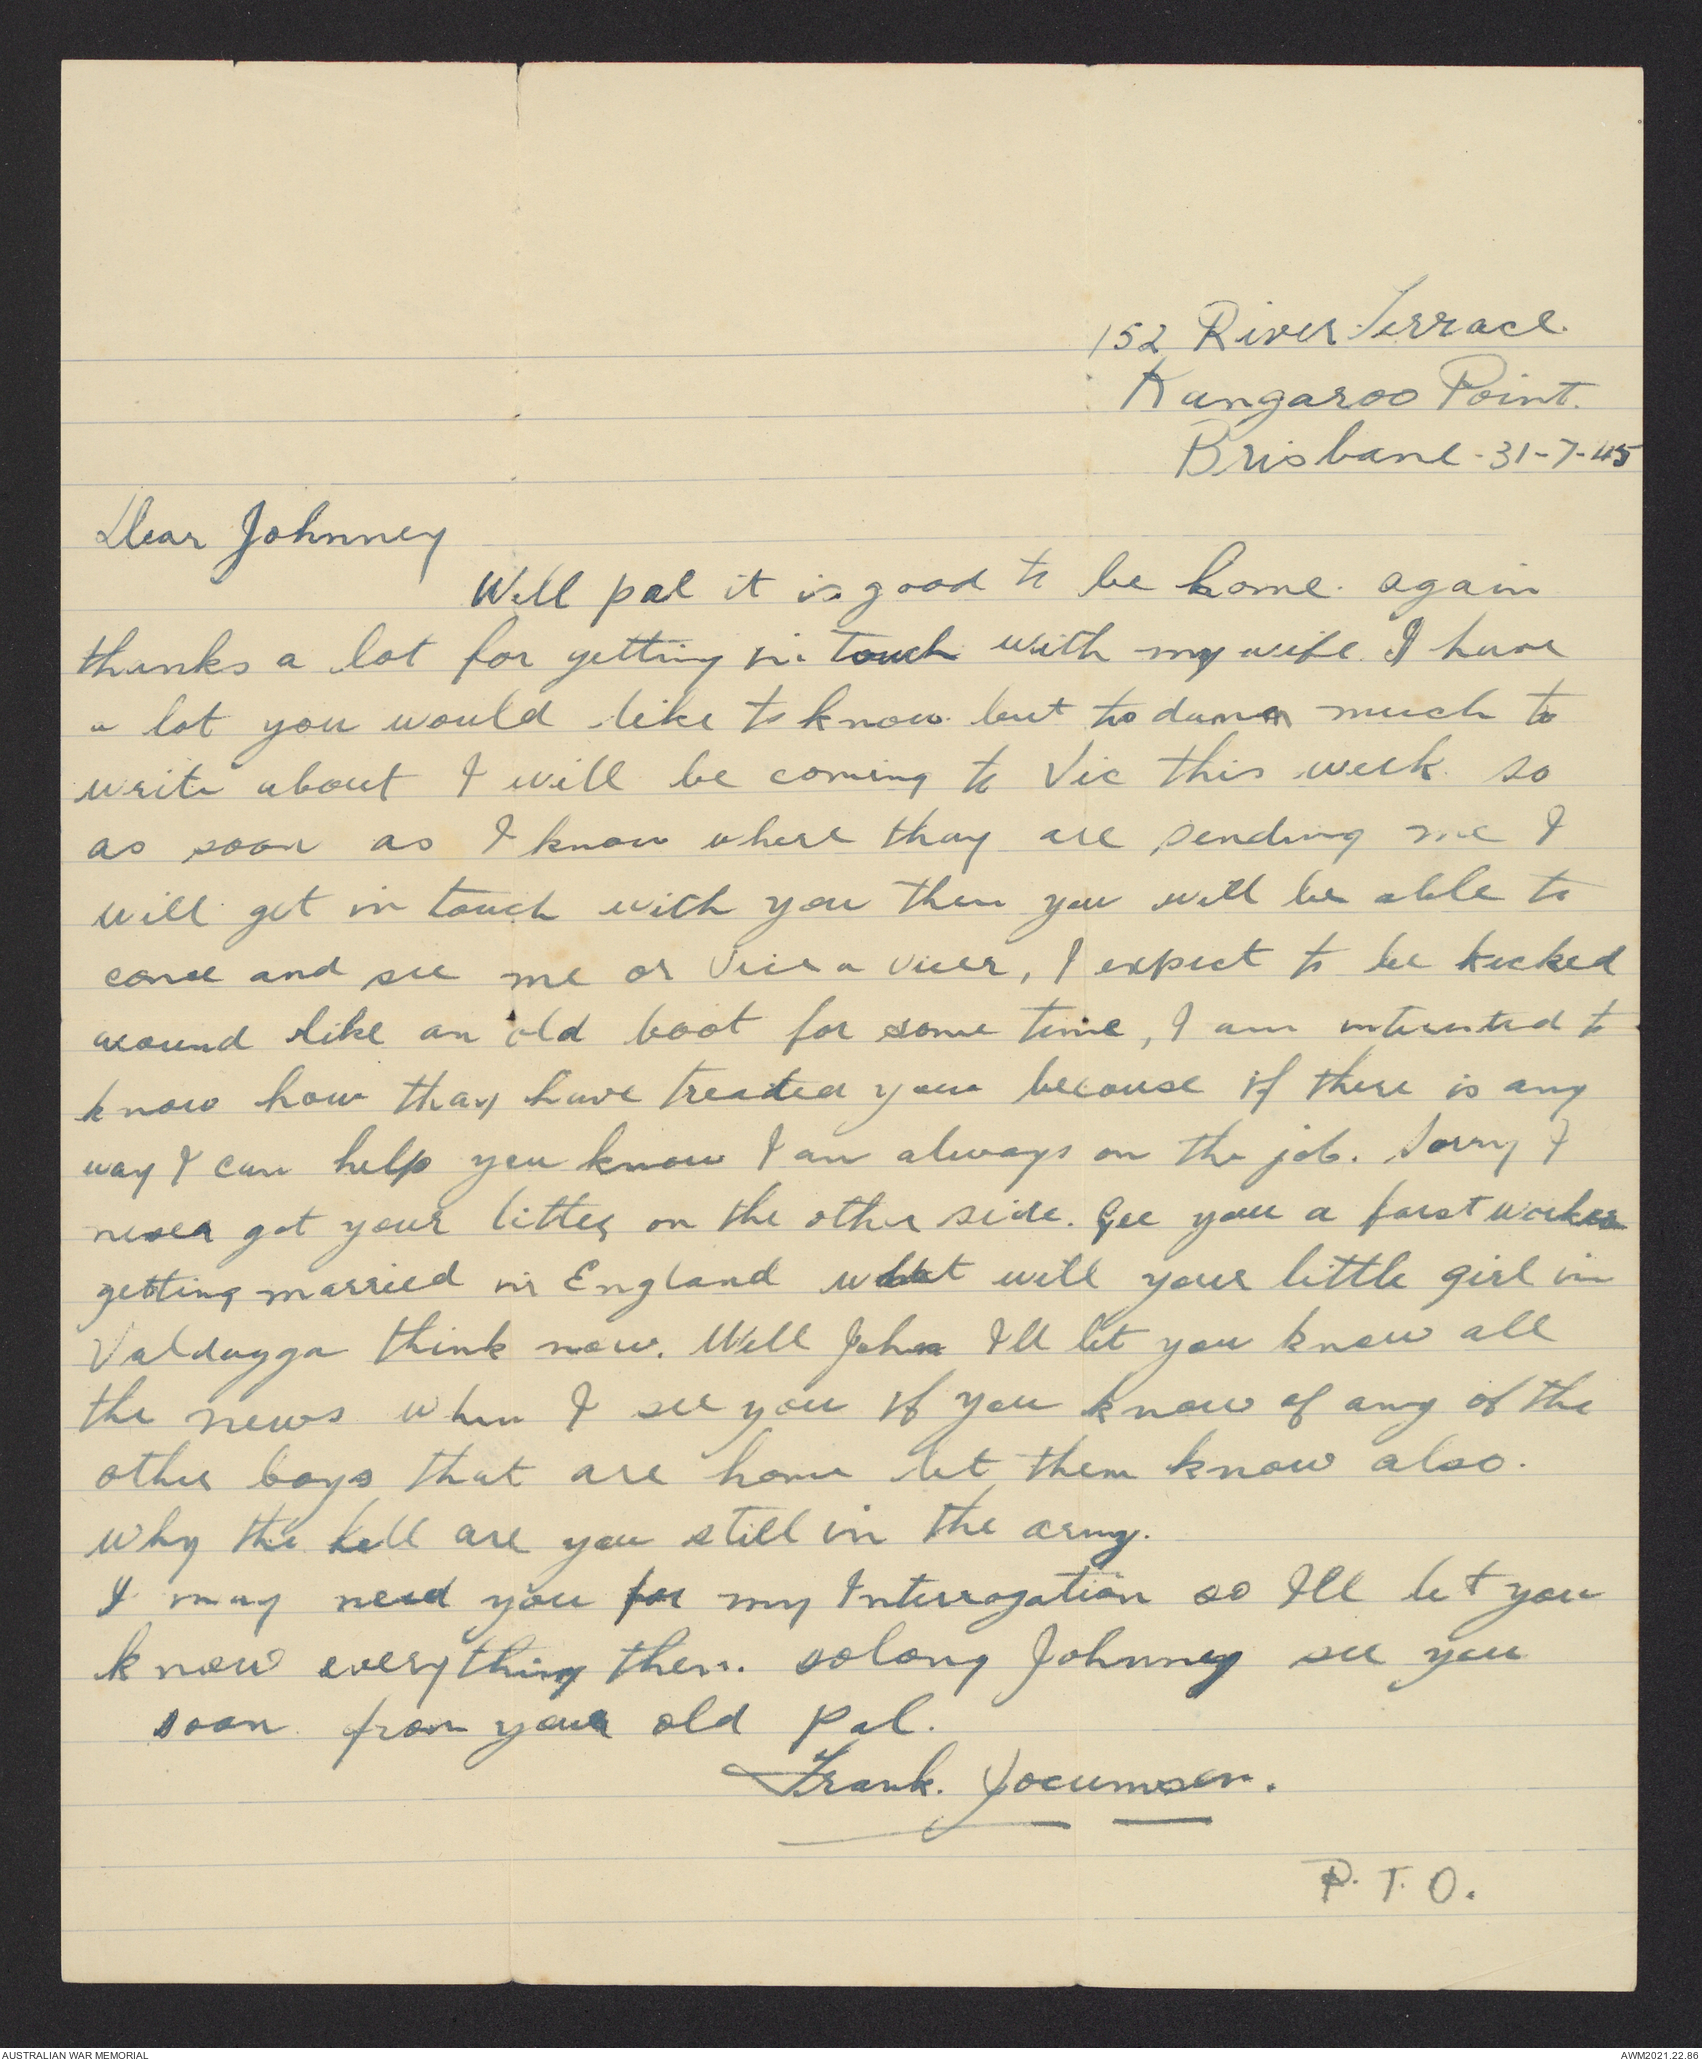 152 River Terrace.
Kangaroo Point.
Brisbane - 31-7-45
Dear Johnney
Well pal it is good to be home. again
thanks a lot for getting in touch with my wife. I have
a lot you would like to know but to damn much to
write about I will be coming to Vic this week so
as soon as I know where thay are sending me I
will get in touch with you then you will be able to
come and see me or vice a vicer, I expect to be kicked
around like an old boot for some time, I am intersted to
know how thay have treated you becouse if there is any
way I can help you know I am always on the job. Sorry I
never got your litter on the other side. Gee you a fast worker
getting married in England what will your little girl in
Valdugga think now. Well John I'll let you know all
the news when I see you if you know of any of the
other boys that are home let them know also.
Why the hell are you still in the army.
I may need you for my Interrogation so I'll let you
know everything then. solong Johnney see you
soon from your old pal.
Frank. Jocumsen.
P.T.O.
AUSTRALIAN WAR MEMORIAL
AWM2021.22.86